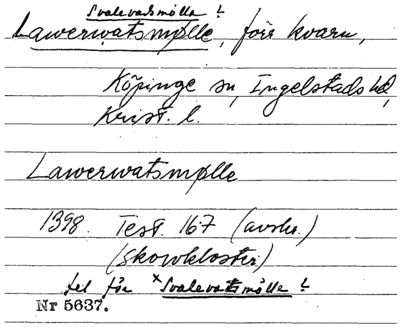 Svalevadsmølla ?
Lawerwatsmølle, förr kvarn,
Köpinge sn, Ingelstads hd,
Krist. l.
Lawerwatsmølle
1398. Test. 167 (avskr.)
(Skowkloster)
fel för *Svalevatsmølle ?
Nr 5637.